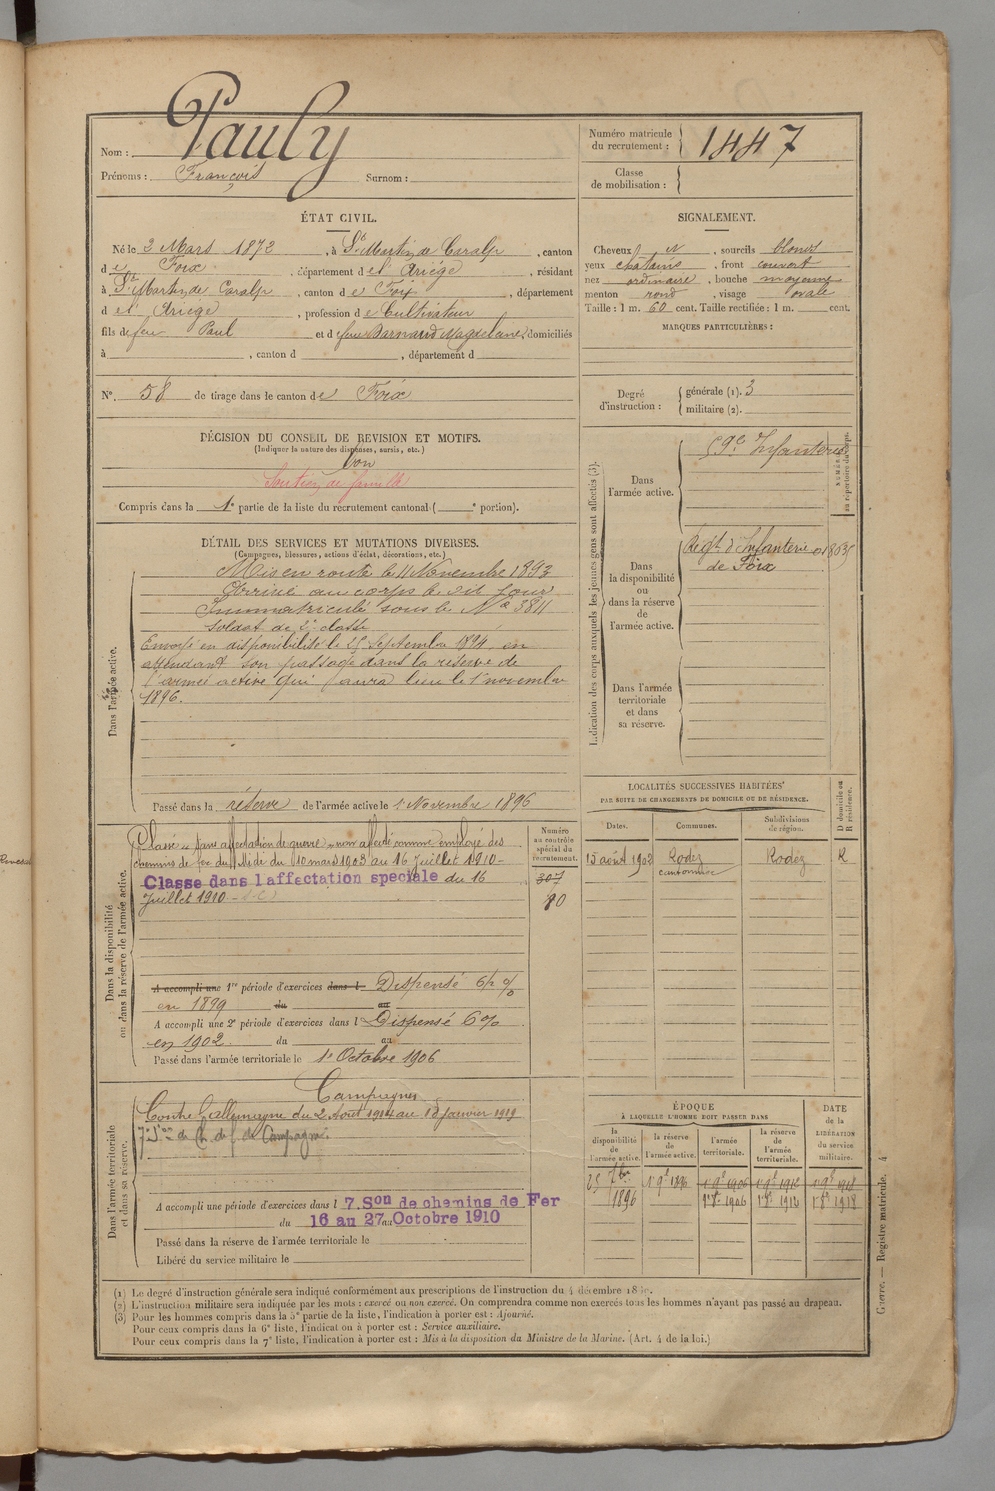 Nom : Pauly
Prénoms : François Surnom :
Numéro matricule du recrutement : 1447
Classe de mobilisation :
ÉTAT CIVIL.
Né le 2 Mars 1872, à St Martin de Caralp, canton
de Foix, département de l'Ariège, résidant
à St Martin de Caralp, canton de Foix, département
de l'Ariège, profession de Cultivateur
fils de feu Paul et de feue Barnaud Magdelaine, domiciliés
à , canton d , département d
N° 58 de tirage dans le canton de Foix
SIGNALEMENT.
Cheveux N, sourcils blonds
yeux chatains, front couvert
nez ordinaire, bouche moyenne
menton rond, visage ovale
Taille : 1 m. 60 cent. Taille rectifiée : 1 m. cent.
MARQUES PARTICULIÈRES :
Degré d'instruction : générale (1). 3
militaire (2).
DÉCISION DU CONSEIL DE REVISION ET MOTIFS.
(Indiquer la nature des dispenses, sursis, etc.)
bon
Soutien de famille
Compris dans la 1e partie de la liste du recrutement cantonal ( e portion).
DÉTAIL DES SERVICES ET MUTATIONS DIVERSES.
(Campagnes, blessures, actions d'éclat, décorations, etc.)
Dans l'armée active.
Mis en route le 11 Novembre 1893
Arrivé au corps le dit jour
Immatriculé sous le No 3811
soldat de 2e classe
Envoyé en disponibilité le 25 Septembre 1894, en
attendant son passage dans la réserve de
l'armée active qui aura lieu le 1er novembre
1896.
Passé dans la réserve de l'armée active le 1er Novembre 1896
Indication des corps auxquels les jeunes gens sont affectés (3).
NUMÉRO au répertoire du corps.
Dans l'armée active.
59e Infanterie
Dans la disponibilité ou dans la réserve de l'armée active.
Régt d'Infanterie
de Foix
Dans l'armée territoriale et dans sa réserve.
LOCALITÉS SUCCESSIVES HABITÉES
PAR SUITE DE CHANGEMENTS DE DOMICILE OU DE RÉSIDENCE.
D domicile ou R résidence.
Dates. Communes. Subdivisions de région.
15 août 1902 Rodez Rodez R
cantonnier
Dans la disponibilité ou dans la réserve de l'armée active.
Numéro au contrôle spécial du recrutement.
307
80
Classé "sans affectation de guerre", non affecté comme employé des
chemins de fer du Midi du 10 mars 1903 au 16 Juillet 1910-
Classe dans l'affectation speciale du 16
Juillet 1910
A accompli une 1re période d'exercices dans l Dispensé 6%
en 1899 du au
A accompli une 2e période d'exercices dans l Dispensé 6%
en 1902 du au
Passé dans l'armée territoriale le 1er Octobre 1906
Dans l'armée territoriale et dans sa réserve.
Campagnes
Contre l'allemagne du 2 Août 1914 au 13 janvier 1919
7e Son de Ch. de f. de Campagne
A accompli une période d'exercices dans l 7.Son de chemins de Fer
du 16 au 27 au Octobre 1910
Passé dans la réserve de l'armée territoriale le
Libéré du service militaire le
ÉPOQUE
À LAQUELLE L'HOMME DOIT PASSER DANS
la disponibilité de l'armée active. la réserve de l'armée active. l'armée territoriale. la réserve de l'armée territoriale.
DATE de la LIBÉRATION du service militaire.
25 7bre 1er 9e 1896 1er 9e 1906 1er 9e 1912 1er 9e 1918
1896 1er 8e 1906 1er 8e 1912 1er 8e 1918
Guerre. — Registre matricule. 4
(1) Le degré d'instruction générale sera indiqué conformément aux prescriptions de l'instruction du 4 décembre 1889.
(2) L'instruction militaire sera indiquée par les mots : exercé ou non exercé. On comprendra comme non exercés tous les hommes n'ayant pas passé au drapeau.
(3) Pour les hommes compris dans la 5e partie de la liste, l'indication à porter est : Ajourné.
Pour ceux compris dans la 6e liste, l'indication à porter est : Service auxiliaire.
Pour ceux compris dans la 7e liste, l'indication à porter est : Mis à la disposition du Ministre de la Marine. (Art. 4 de la loi.)